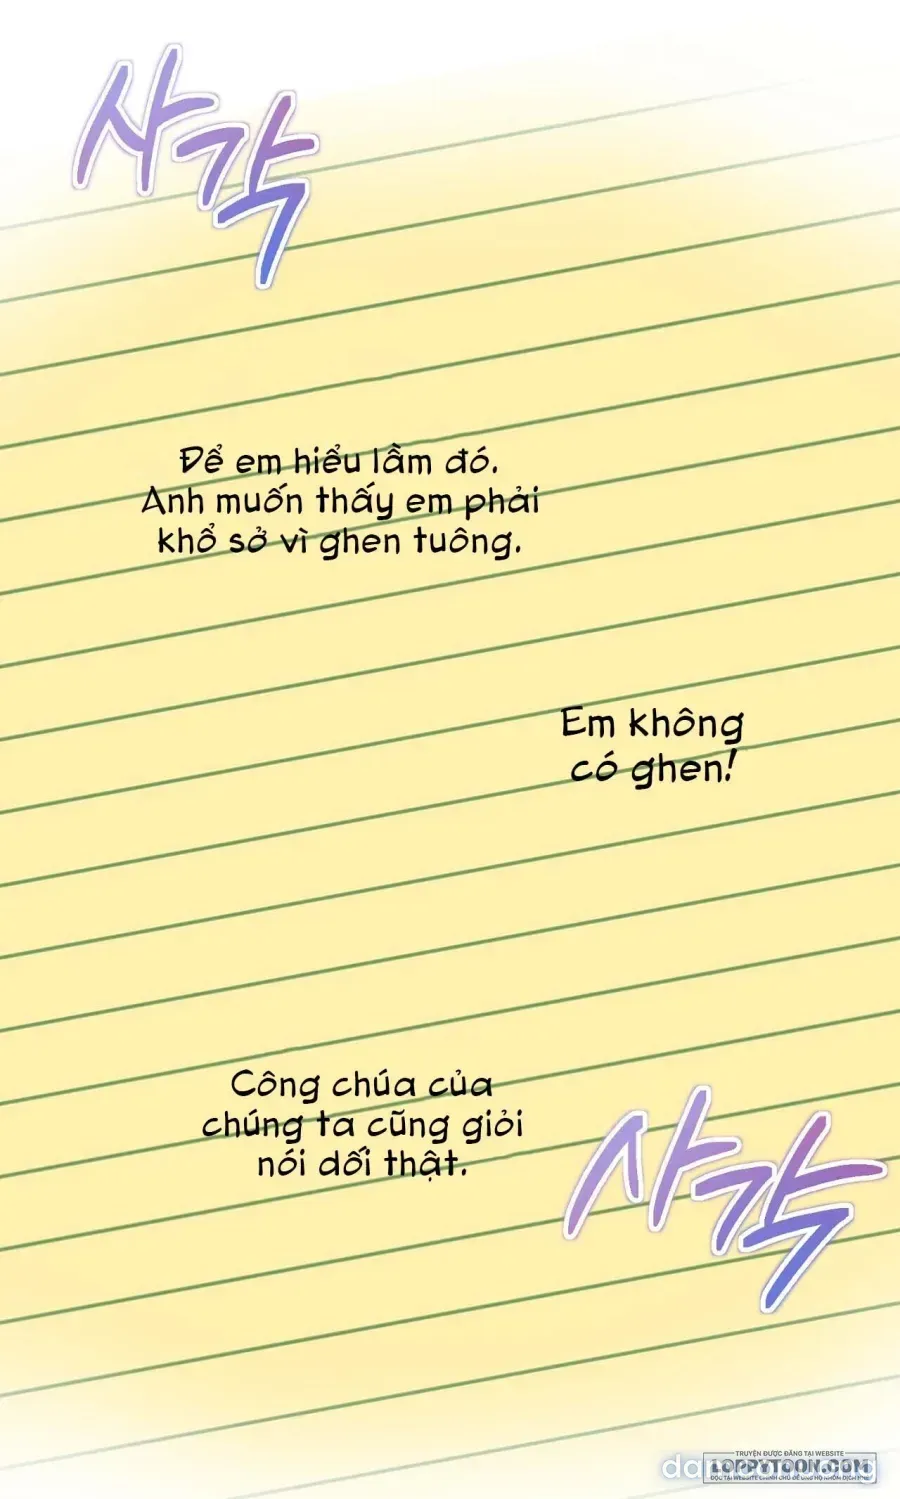 사각
Để em hiểu lầm đó.
Anh muốn thấy em phải
khổ sở vì ghen tuông.
Em không
có ghen!
Công chúa của
chúng ta cũng giỏi
nói dối thật.
사각
TRUYỆN ĐƯỢC ĐĂNG TẠI WEBSITE
LOPPYTOON.COM